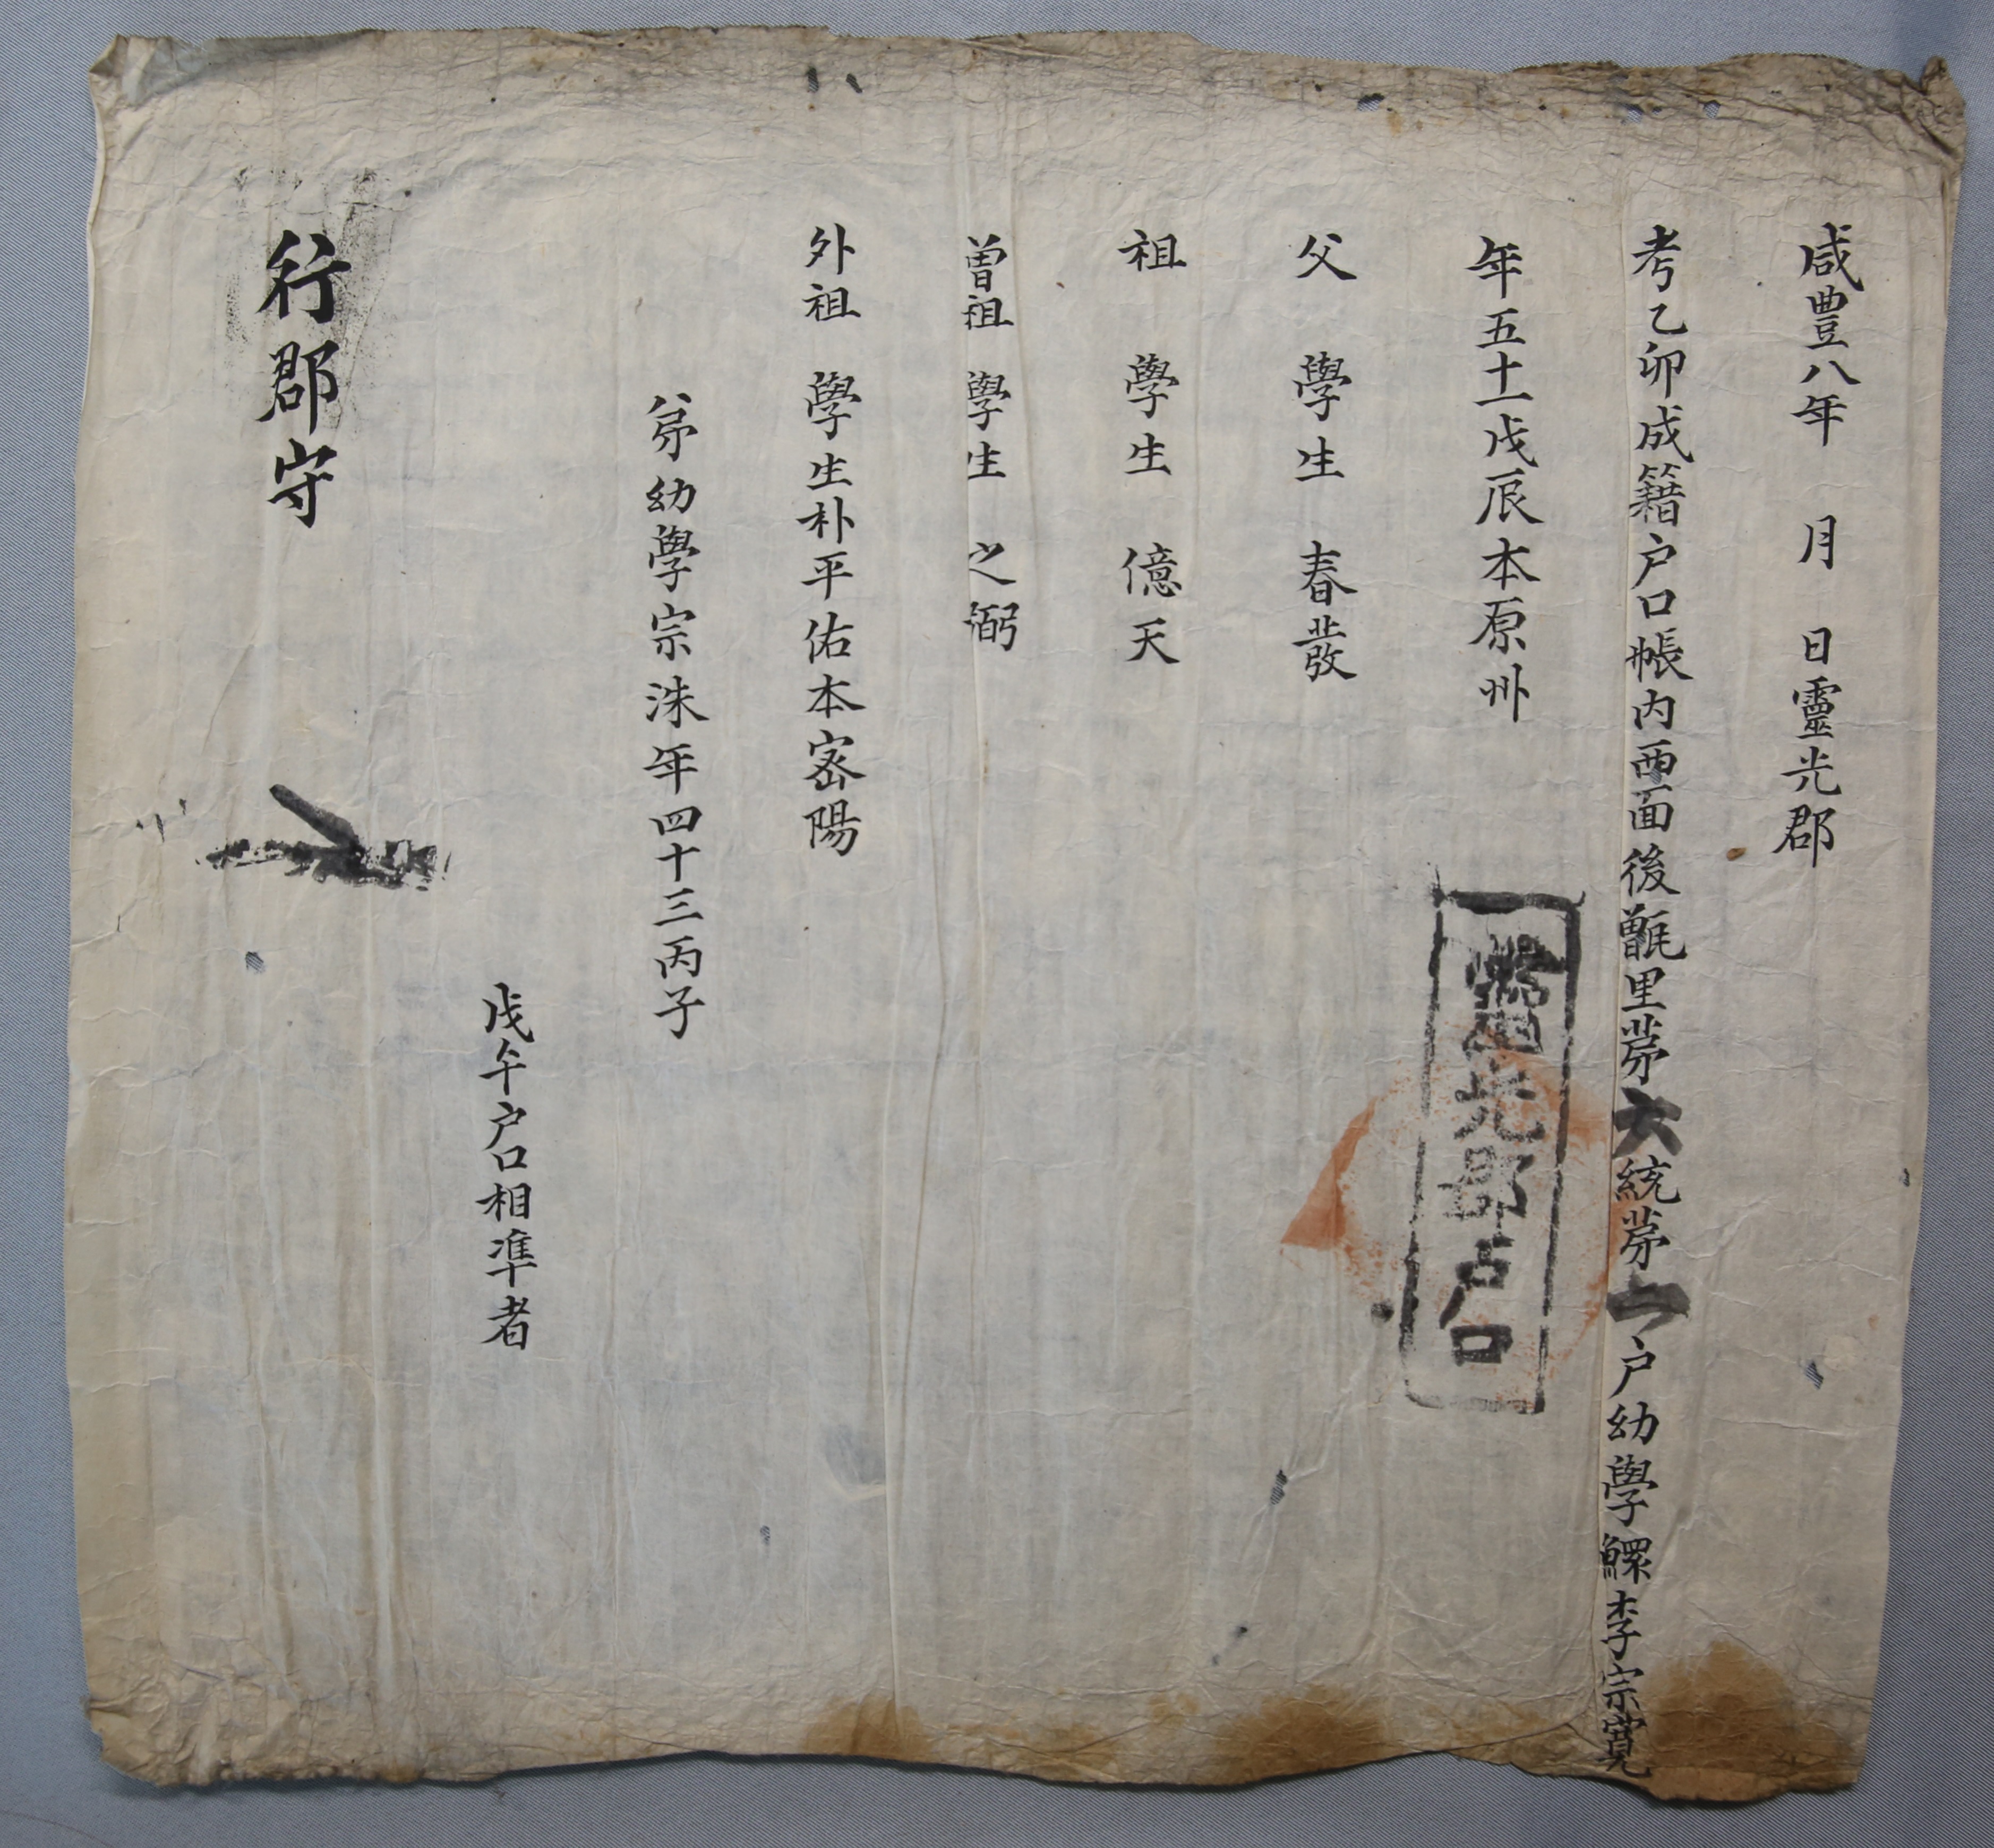 咸豊八年 月 日靈光郡
考乙卯成籍户口帳内西面後甑里苐六統苐一户幼學鰥李宗寬
年五十一戊辰本原州
父 學生 春發
祖 學生 億天
曽祖 學生 之弼
外祖 學生朴平佑本密陽
苐幼學宗洙年四十三丙子
戊午户口相凖者
行郡守
靈光郡户口